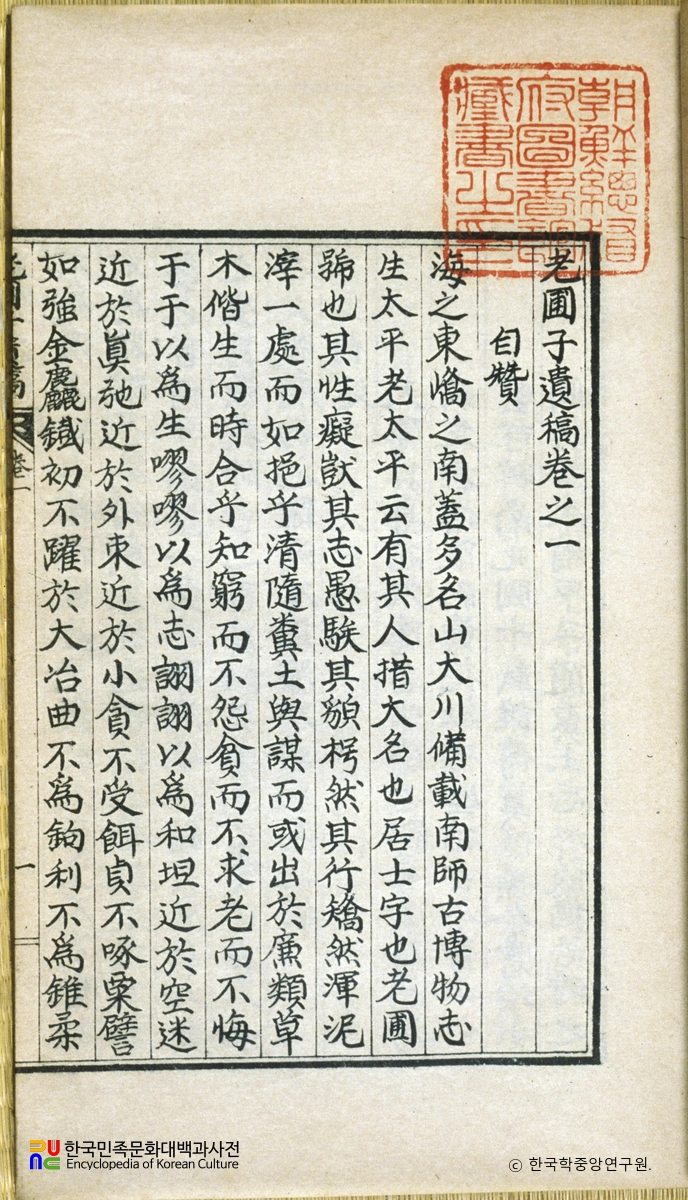 朝鮮總督
府圖書部
藏書之印
老圃子遺稿卷之一
自贊
海之東嶠之南蓋多名山大川備載南師古博物志
生太平老太平云有其人措大名也居士字也老圃
號也其性癡獃其志愚騃其貌枵然其行矯然渾泥
滓一處而如挹乎清隨糞土與謀而或出於廉類草
木偕生而時合乎知窮而不怨貧而不求老而不悔
于于以爲生嘐嘐以爲志詡詡以爲和坦近於空迷
近於眞弛近於外束近於小貪不受餌貞不啄粟譬
如強金麤鐵初不躍於大冶曲不爲鉤利不爲錐柔
卷一
一
한국민족문화대백과사전
Encyclopedia of Korean Culture
© 한국학중앙연구원.